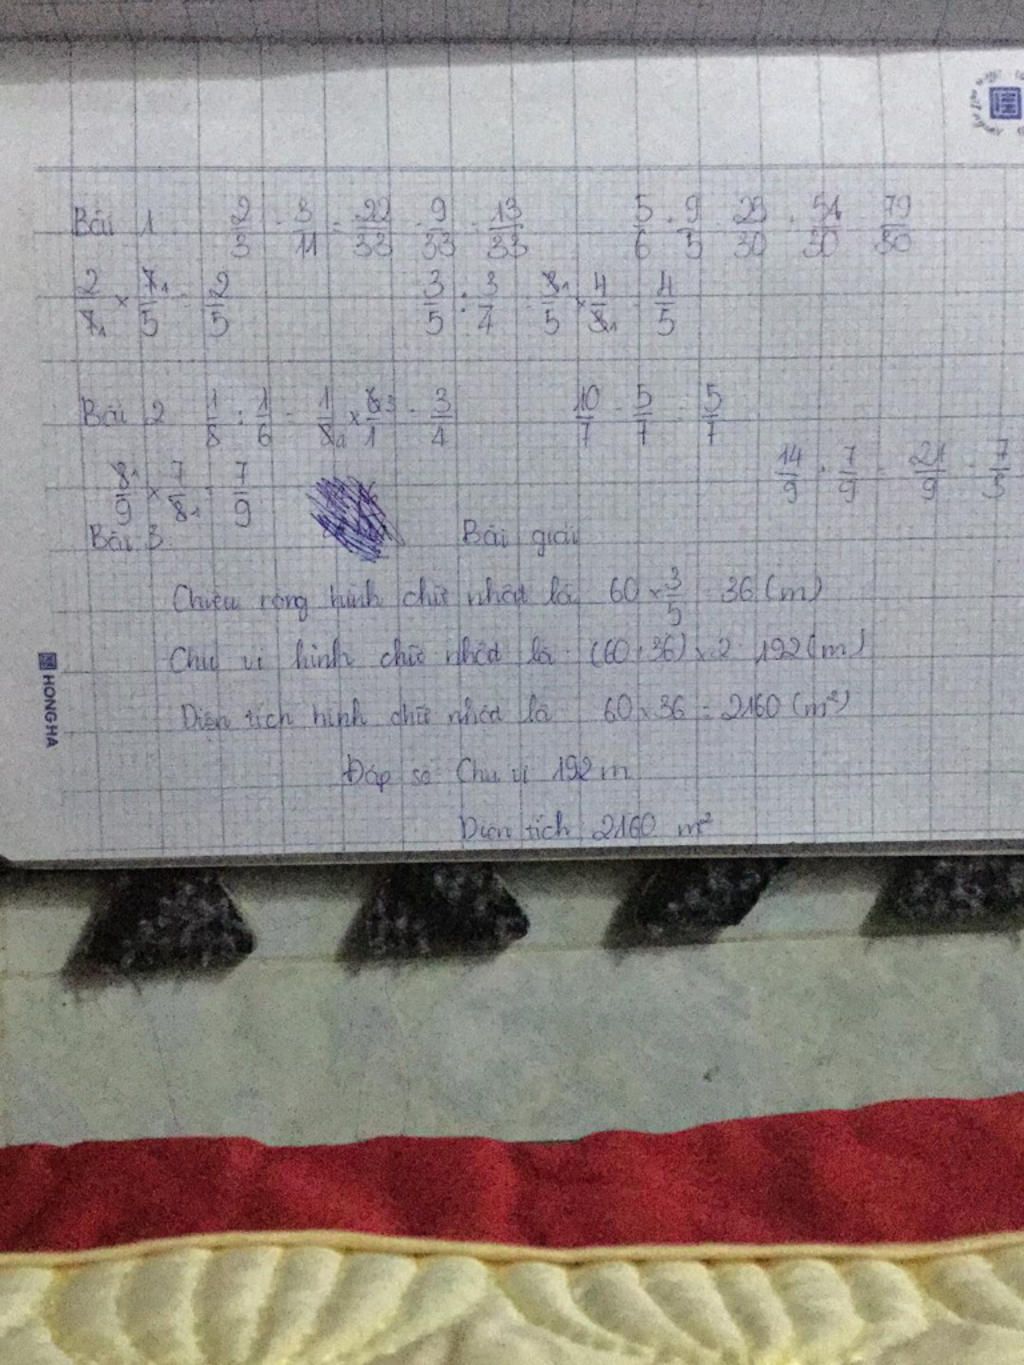 Bài 1 2/3 - 3/11 = 22/33 - 9/33 = 13/33 5/6 + 9/5 = 25/30 + 54/30 = 79/30
2/7 × 7/5 = 2/5 3/5 : 3/4 = 3/5 × 4/3 = 4/5
Bài 2 1/8 : 1/6 = 1/8 × 6/1 = 3/4 10/7 - 5/7 = 5/7
14/9 + 7/9 = 21/9 = 7/3
8/9 × 7/8 = 7/9
Bài 3 Bài giải
Chiều rộng hình chữ nhật là 60 × 3/5 = 36 (m)
Chu vi hình chữ nhật là (60 + 36) × 2 = 192 (m)
Diện tích hình chữ nhật là 60 × 36 = 2160 (m²)
Đáp số Chu vi 192 m
Diện tích 2160 m²
HONG HA